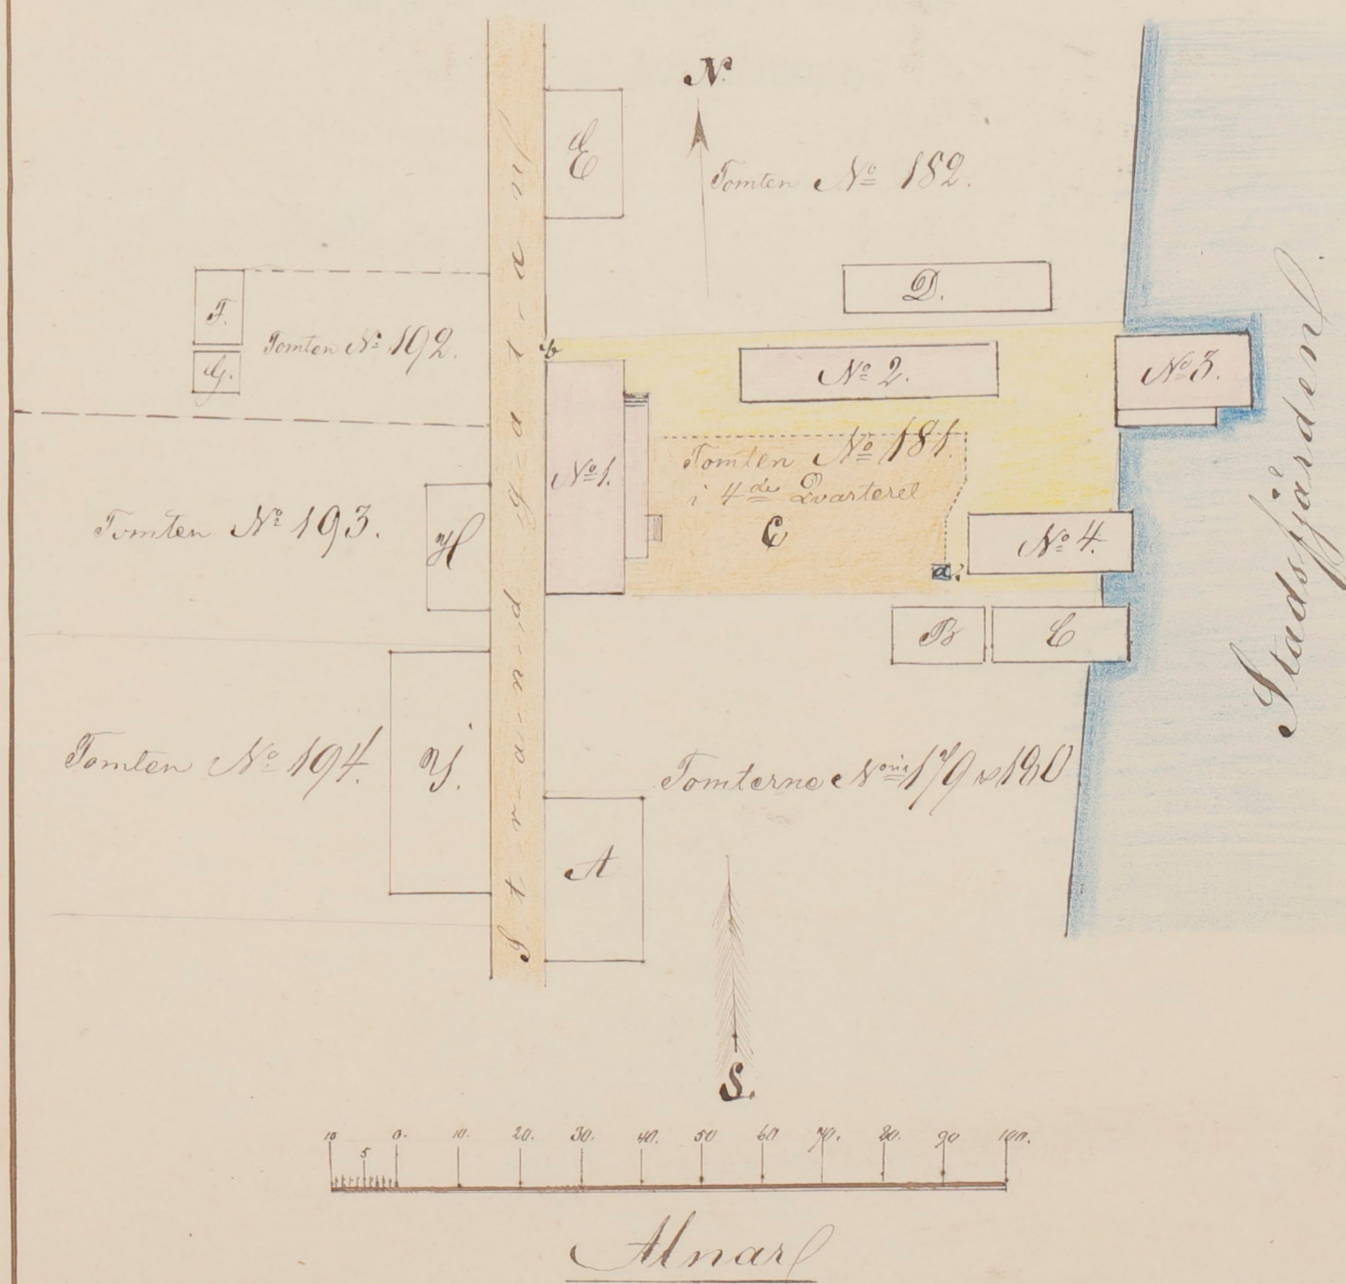 N.
E
Tomten No 182.
D.
F.
Tomten No 192.
G.
b
No 2.
No 3.
No 1.
Tomten No 181.
i 4de Qvarteret
C
Tomten No 193.
H
No 4.
a.
B
C
Strandgatan
Stadsfjärden
Tomten No 194.
Y.
Tomterne Noris 179 & 180
A
S.
10 5 0. 10. 20. 30. 40. 50 60 70. 80. 90 100.
Alnar